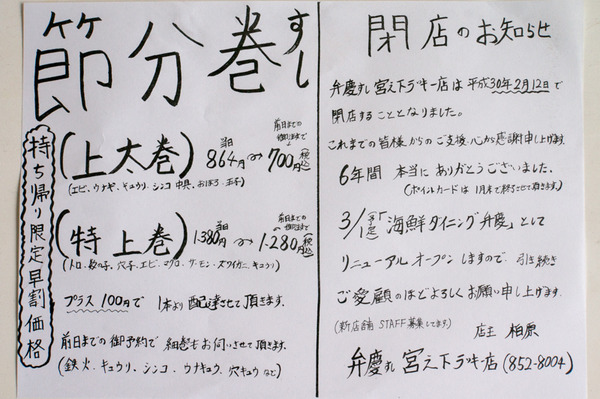 節分巻すし
持ち帰り限定早割価格
(上太巻) 当日 864円 → 前日までの御予約まで 700円(税込)
(エビ、ウナギ、キュウリ、シンコ、おぼろ、玉子)
(特上巻) 当日 1.380円 → 前日までの御予約まで 1.280円(税込)
(トロ、数の子、穴子、エビ、マグロ、サーモン、ズワイガニ、キュウリ)
プラス100円で 1本より配達させて頂きます.
前日までの御予約で 細巻もお伺いさせて頂きます.
(鉄火、キュウリ、シンコ、ウナキュウ、穴キュウなど)
閉店のお知らせ
弁慶すし宮え下ラッキー店は平成30年2月12日で
閉店することとなりました。
これまでの皆様からのご支援、心から感謝申し上げます.
6年間 本当にありがとうございました.
(ポイントカードは1月末で終了させて頂きます.)
3/1(予定)「海鮮ダイニング弁慶」として
リニューアルオープンしますので、引き続き
ご愛顧のほどよろしくお願い申し上げます.
(新店舗 STAFF募集してます) 店主 柏原
弁慶すし宮え下ラッキー店(852-8004)